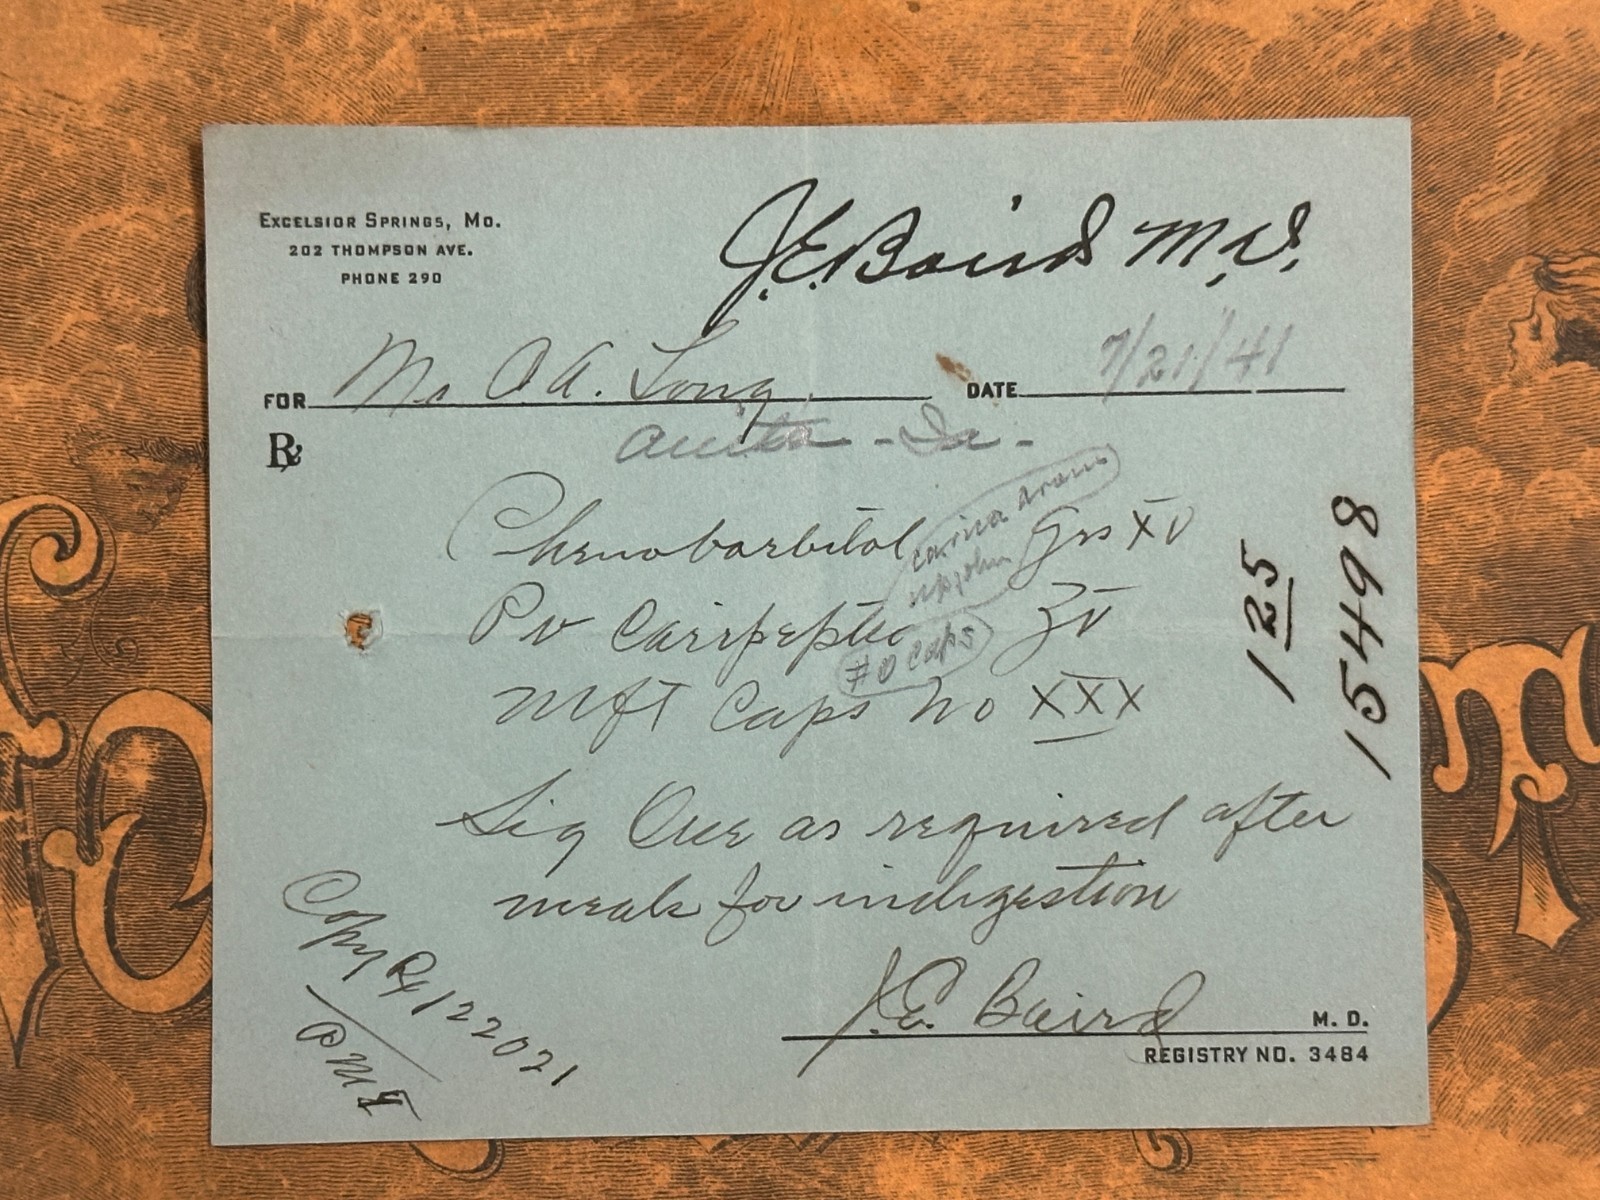 EXCELSIOR SPRINGS, MO.
202 THOMPSON AVE.
PHONE 290
J.E. Baird M.D.
FOR Mr O A. Long
DATE 7/21/41
Anita - Ia -
Rx
Phenobarbital Grs XV
Upjohn
Pv Caripeptic ʒv
#0 Caps
Mft Caps No XXX
Sig One as required after
meals for indigestion
J.E. Baird M. D.
REGISTRY NO. 3484
Copy Rx 122021
125
15498